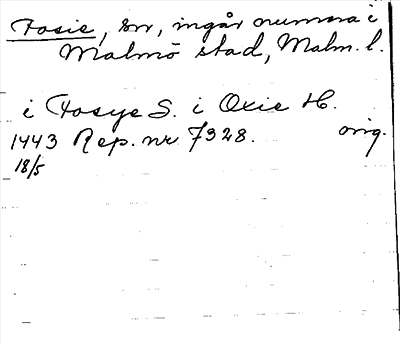 Fosie, sn, ingår numera i
Malmö stad, Malm. l.
i Fosye S. i Oxie H.
1443 Rep. nr 7328. orig.
18/5